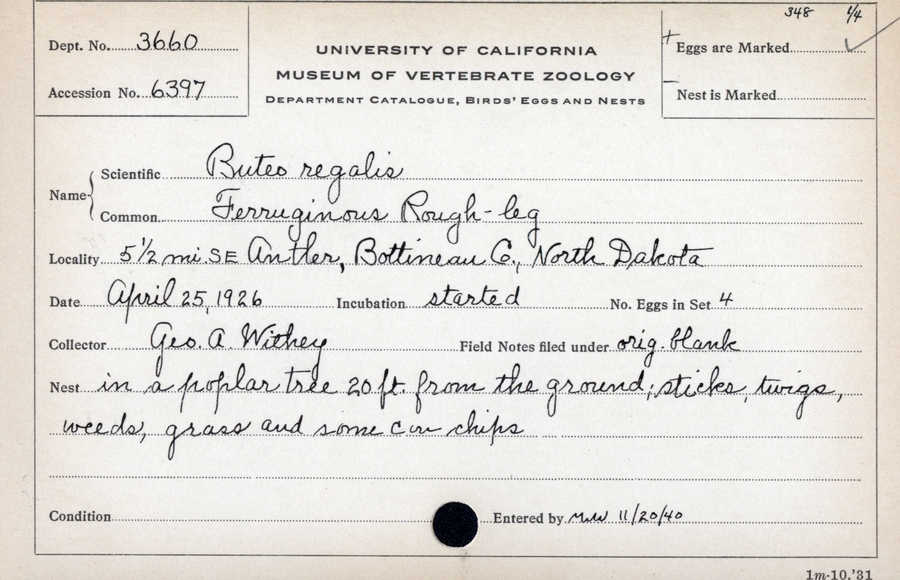 348 1/4
Dept. No. 3660
UNIVERSITY OF CALIFORNIA
+ Eggs are Marked ✓
MUSEUM OF VERTEBRATE ZOOLOGY
Accession No. 6397
DEPARTMENT CATALOGUE, BIRDS' EGGS AND NESTS
— Nest is Marked
Name { Scientific Buteo regalis
Common Ferruginous Rough-leg
Locality 5 1/2 mi. SE Antler, Bottineau Co., North Dakota
Date April 25, 1926 Incubation started No. Eggs in Set 4
Collector Geo. A. Withey Field Notes filed under orig. blank
Nest in a poplar tree 20 ft. from the ground; sticks, twigs,
weeds, grass and some cow chips
Condition Entered by 11/20/40
1m-10,'31